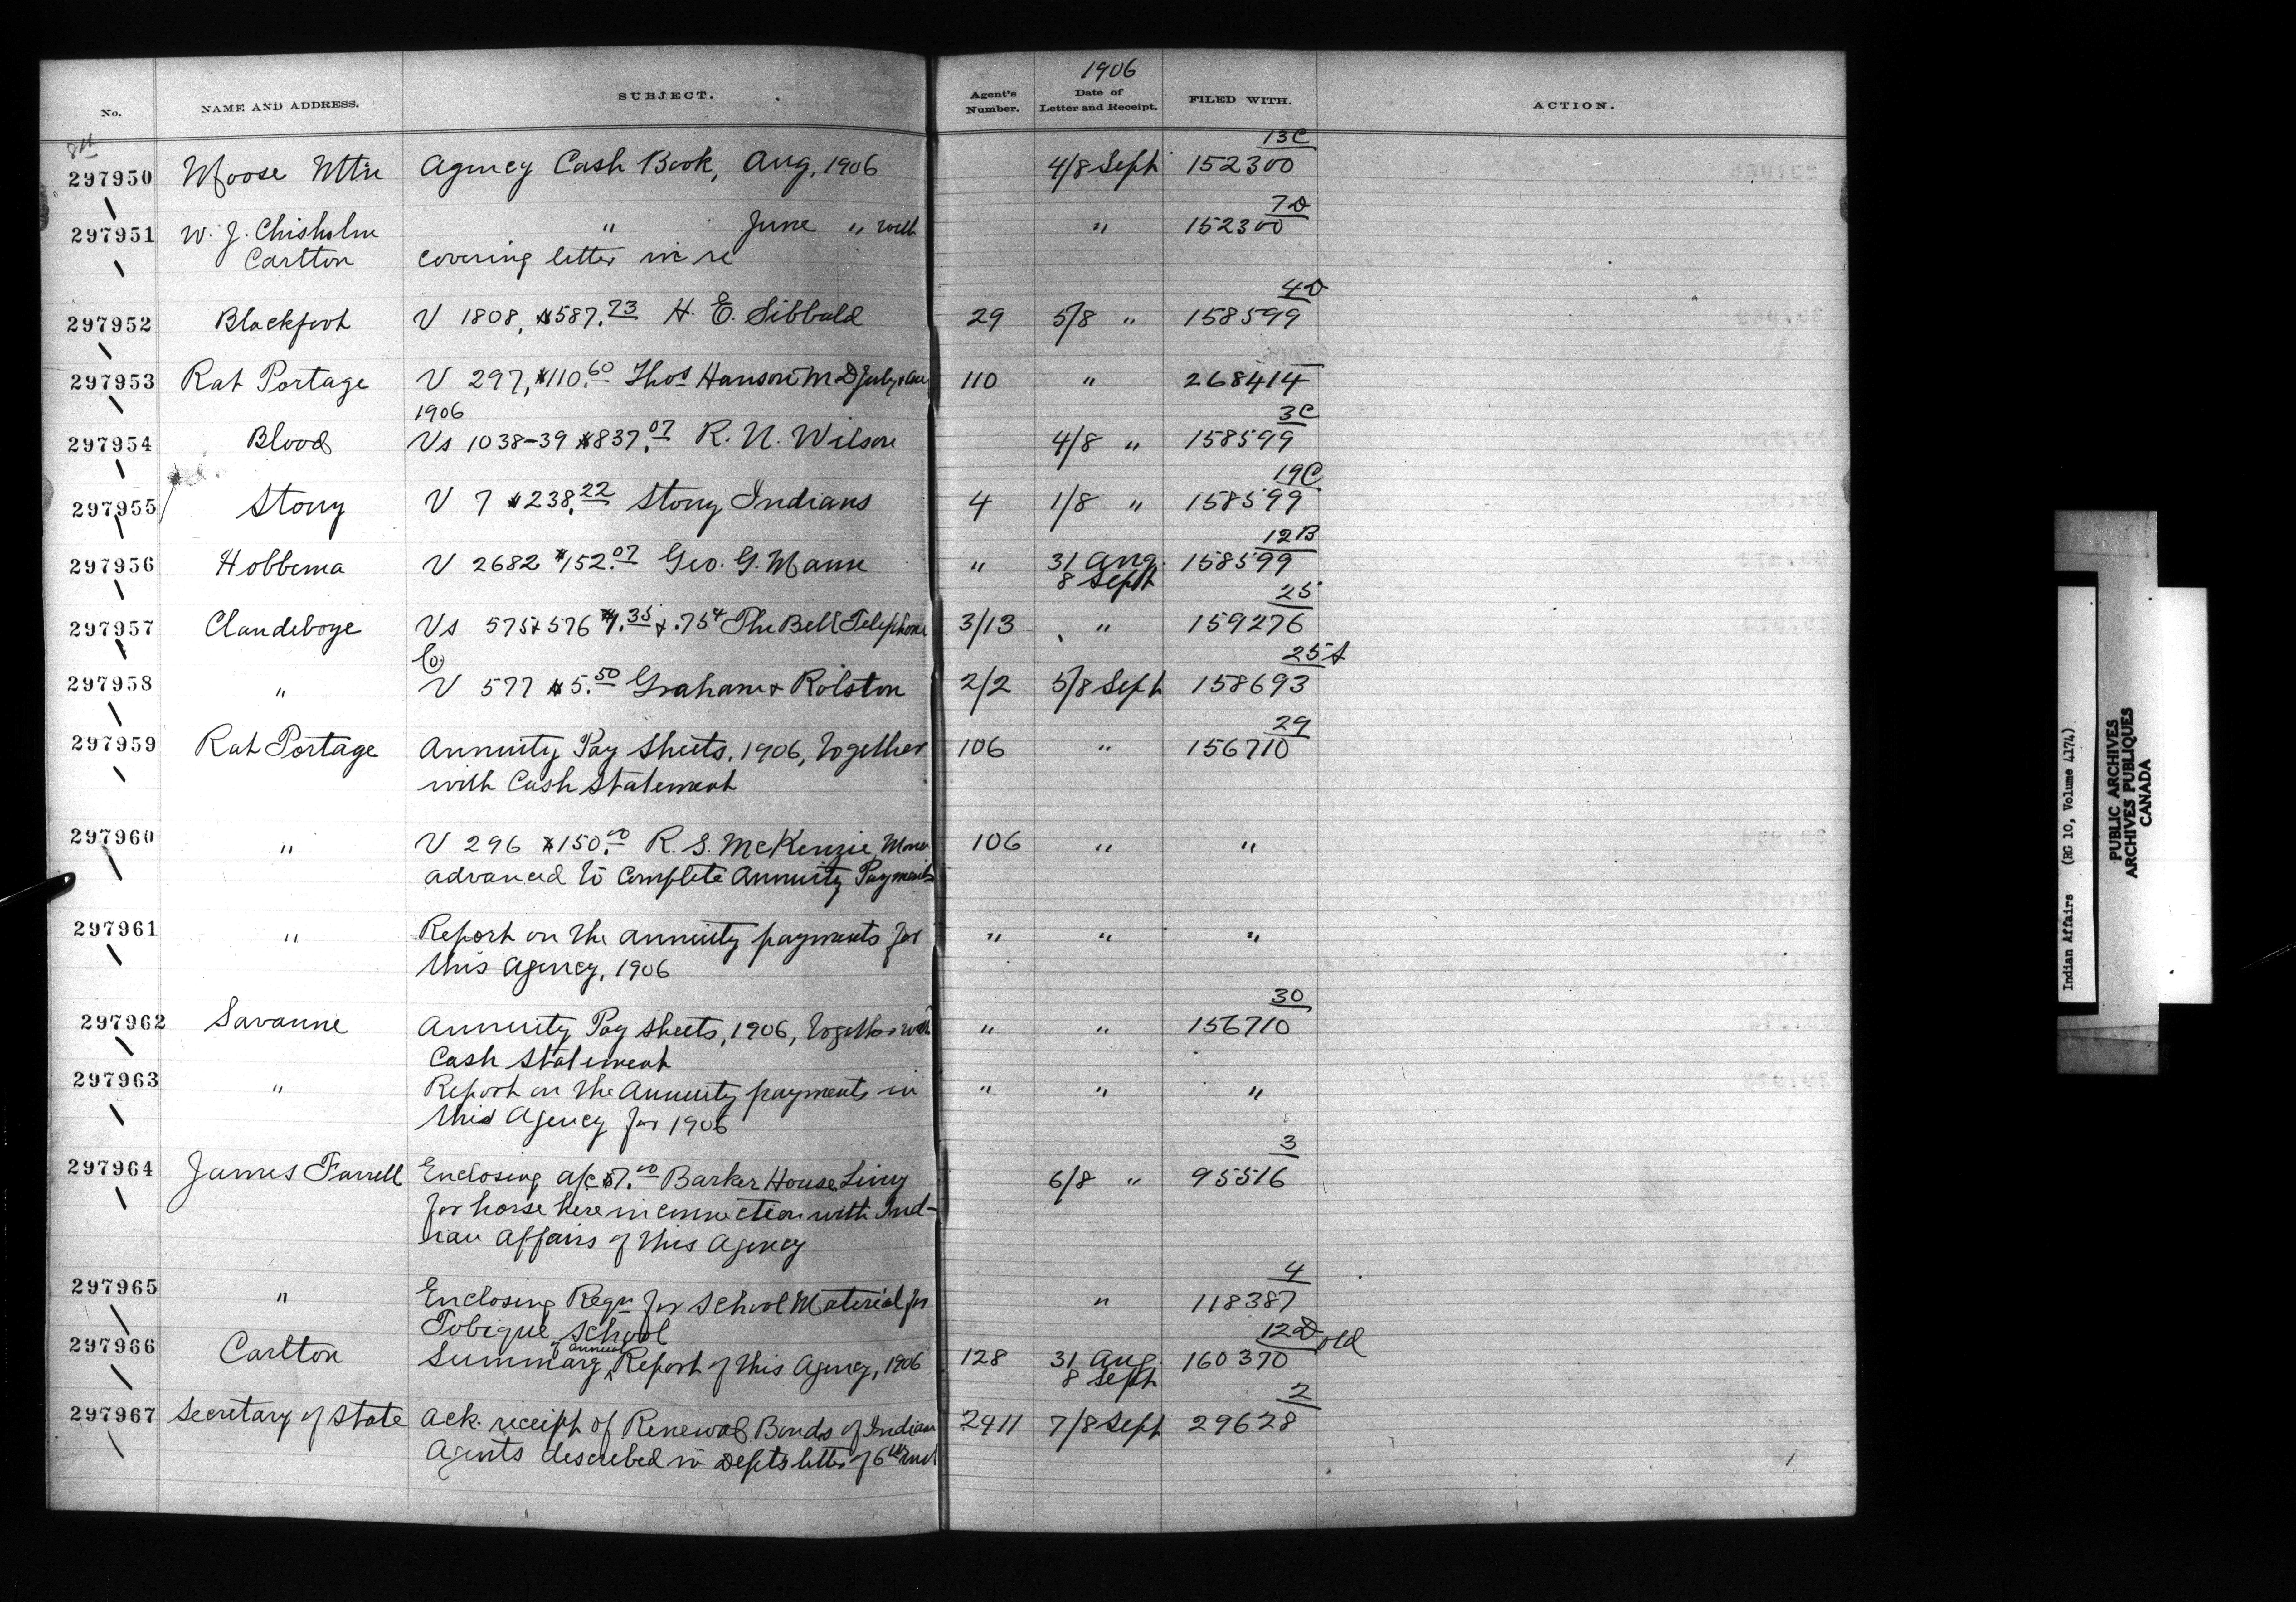 1906
No. NAME AND ADDRESS. SUBJECT. Agent's Number. Date of Letter and Receipt. FILED WITH. ACTION.
8th
13C
297950 Moose Mtn Agency Cash Book, Aug, 1906 4/8 Sept 152300
7D
297951 W. J. Chisholm " June " with " 152300
Carlton covering letter in re
4D
297952 Blackfoot V 1808, $587.73 H. E. Sibbald 29 5/8 " 158599
297953 Rat Portage V 297, $110.60 Thos Hanson M.D July & Aug 110 " 268414
1906
3C
297954 Blood Vs 1038-39 $837.07 R. N. Wilson 4/8 " 158599
19C
297955 Stony V 7 $238.22 Stony Indians 4 1/8 " 158599
12B
297956 Hobbema V 2682 $152.07 Geo. G. Mann " 31 Aug. 158599
8 Sept
25
297957 Clandeboye Vs 575 & 576 $1.35 & .75¢ The Bell Telephone 3/13 " 159276
Co
25A
297958 " V 577 $5.50 Graham & Rolston 2/2 5/8 Sept 158693
29
297959 Rat Portage Annuity Pay Sheets, 1906, together 106 " 156710
with Cash Statement
297960 " V 296 $150.00 R. S. McKenzie, Money 106 " "
advanced to complete Annuity Payments
297961 " Report on the annuity payments for " " "
this Agency, 1906
30
297962 Savanne Annuity Pay sheets, 1906, together with " " 156710
Cash Statement
297963 " Report on the Annuity payments in " " "
this Agency for 1906
3
297964 James Farrell Enclosing a/c $7.00 Barker House Livery 6/8 " 95516
for horse hire in connection with Ind-
ian Affairs of this Agency
4
297965 " Enclosing Reqn for School Material for " 118387
Tobique School
12D old
of annual
297966 Carlton Summary Report of this Agency, 1906 128 31 Aug. 160370
8 Sept
2
297967 Secretary of State Ack. receipt of Renewal Bonds of Indian 2411 7/8 Sept 29628
Agents described in Depts letter of 6th inst
Indian Affairs (RG 10, Volume 4174)
PUBLIC ARCHIVES
ARCHIVES PUBLIQUES
CANADA